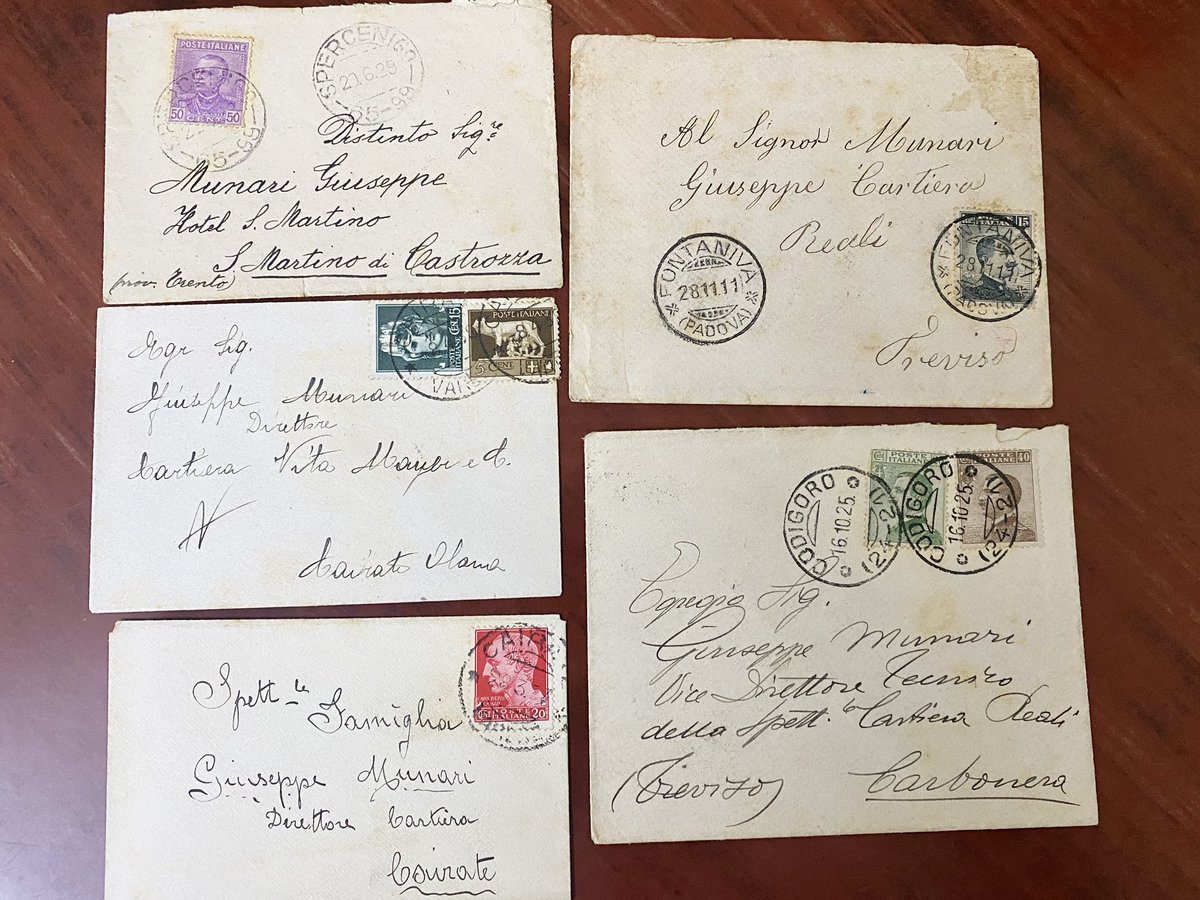 POSTE ITALIANE
50 50
CENT
SPERCENIGO
20.6.29
65-99
65-99
Distinto Sigre
Munari Giuseppe
Hotel S. Martino
S. Martino di Castrozza
(prov. Trento)
15
FONTANIVA
28.11.11
(PADOVA)
FONTANIVA
28.11.11
(PADOVA)
Al Signor Munari
Giuseppe Cartiera
Reali
Treviso
POSTE ITALIANE
CENT 15
POSTE ITALIANE
5 CENT
Sig.
Giuseppe Munari
Direttore
Cartiera Vita Mayer e C.
Cairate Olona
POSTE ITALIANE
POSTE ITALIANE
40
CODIGORO
16.10.25.
(24-21)
CODIGORO
16.10.25.
(24-21)
Egregio Sig.
Giuseppe Munari
Vice Direttore Tecnico
della Spett. le Cartiera Reali
(Treviso) Carbonera
20
Spett le
Famiglia
Giuseppe Munari
Direttore Cartiera
Cairate